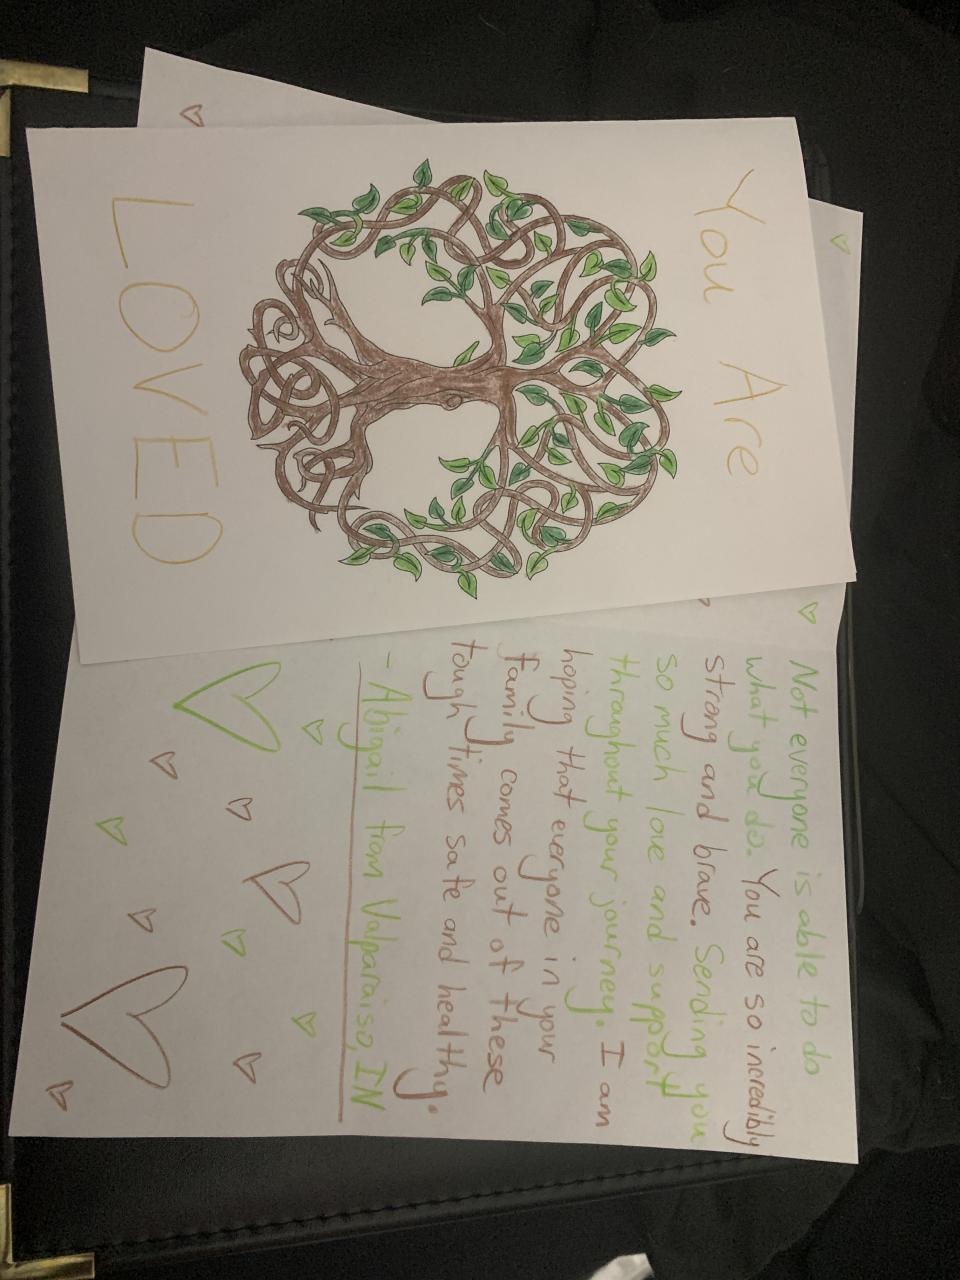 You Are
LOVED
Not everyone is able to do
what you do. You are so incredibly
strong and brave. Sending you
so much love and support
throughout your journey. I am
hoping that everyone in your
family comes out of these
tough times safe and healthy.
- Abigail from Valparaiso, IN